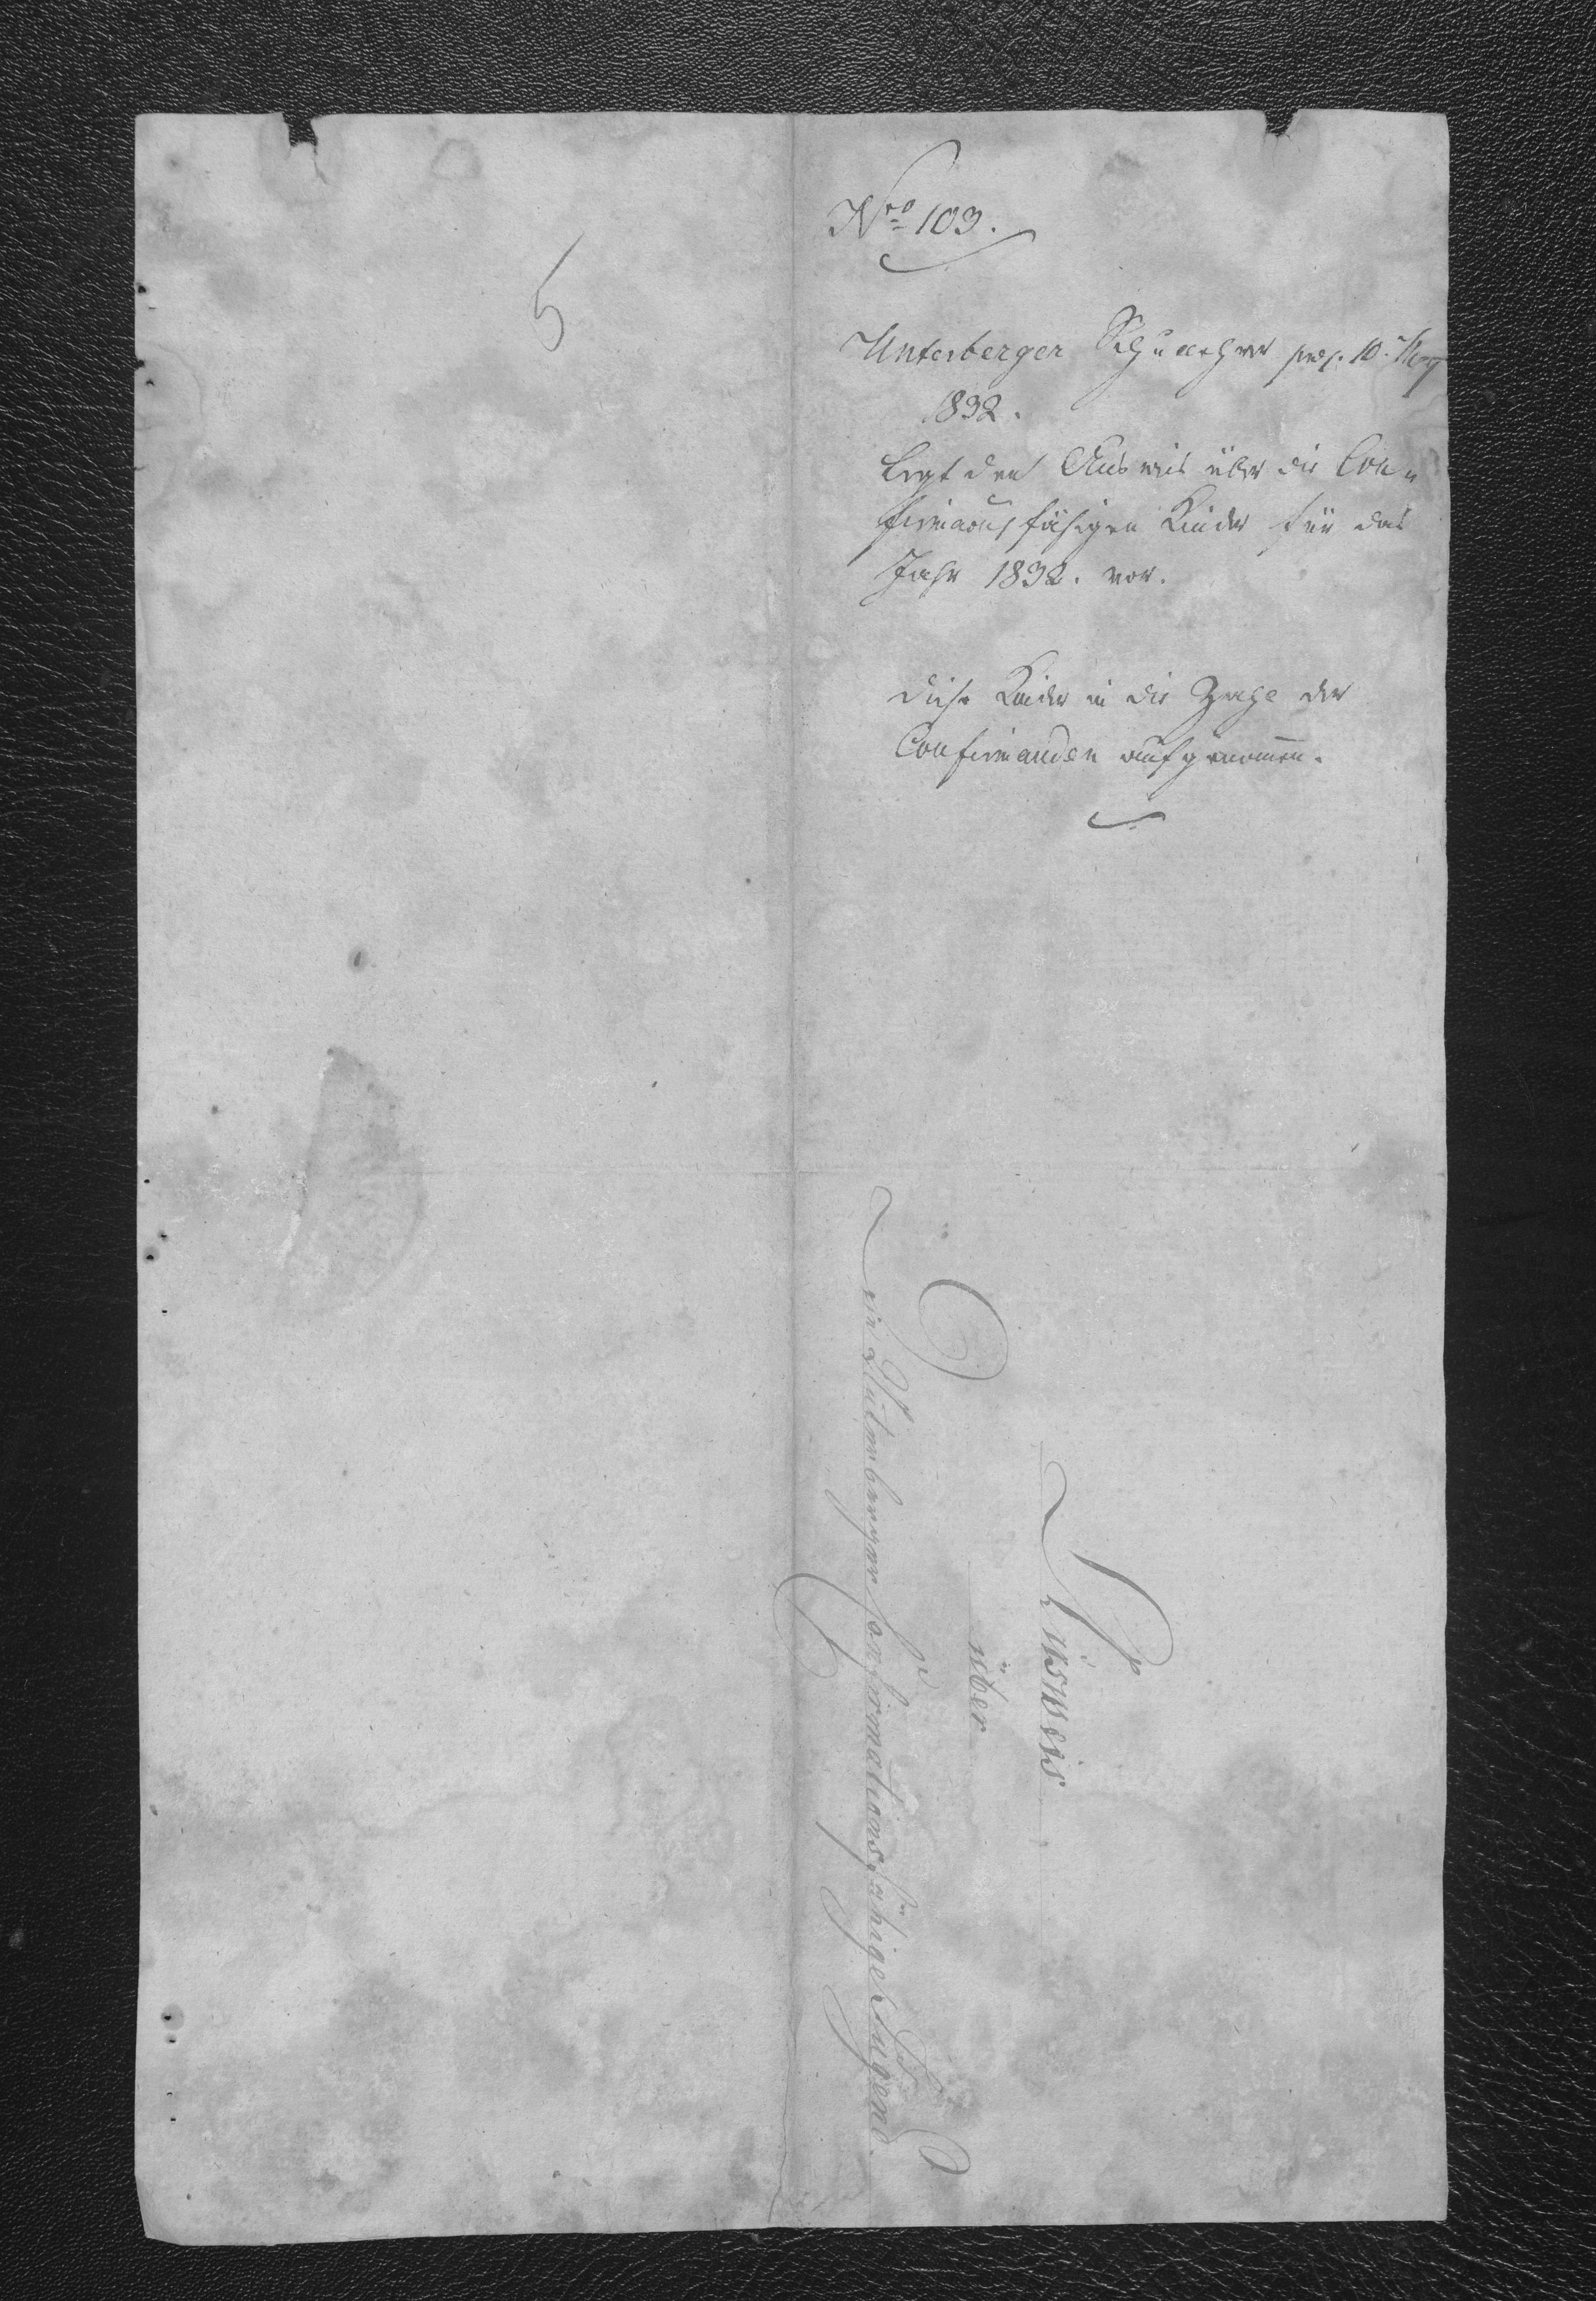 5
Nro 103.
Unterberger Schullehrer präs. 10. May
1832.
legt den Ausweis über die Con-
firmationsfähigen Kinder für das
Jahr 1832. vor.
Diese Kinder in die Zahl der
Confirmanden aufgenommen.
Ausweis
über
die Unterberger Confirmationsfähige Jugend.